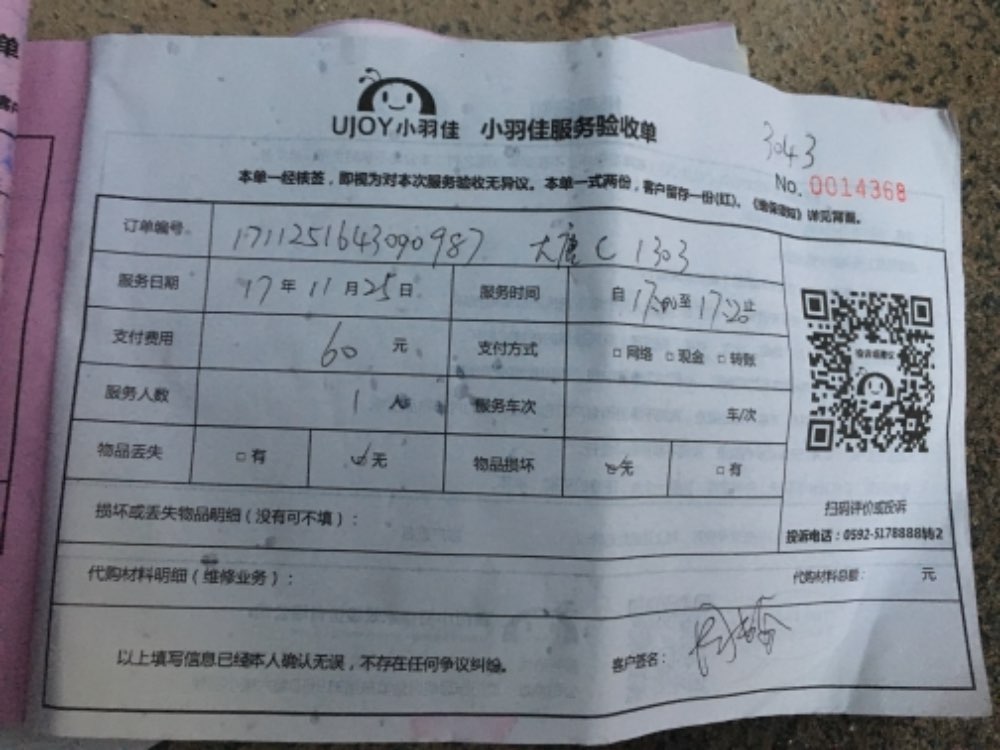 UJOY小羽佳 小羽佳服务验收单
3043
No. 0014368
本单一经核签，即视为对本次服务验收无异议。本单一式两份，客户留存一份(红)。详见背面。
订单编号 1711251643090987 大唐C 1303
服务日期 17年11月25日 服务时间 自17:00至17:20止
支付费用 60元 支付方式 □网络 □现金 □转账
服务人数 1人 服务车次 车/次
物品丢失 □有 ☑无 物品损坏 ☑无 □有
损坏或丢失物品明细（没有可不填）：
扫码评价或投诉
投诉电话：0592-5178888转2
代购材料明细（维修业务）： 代购材料总额： 元
以上填写信息已经本人确认无误，不存在任何争议纠纷。 客户签名：